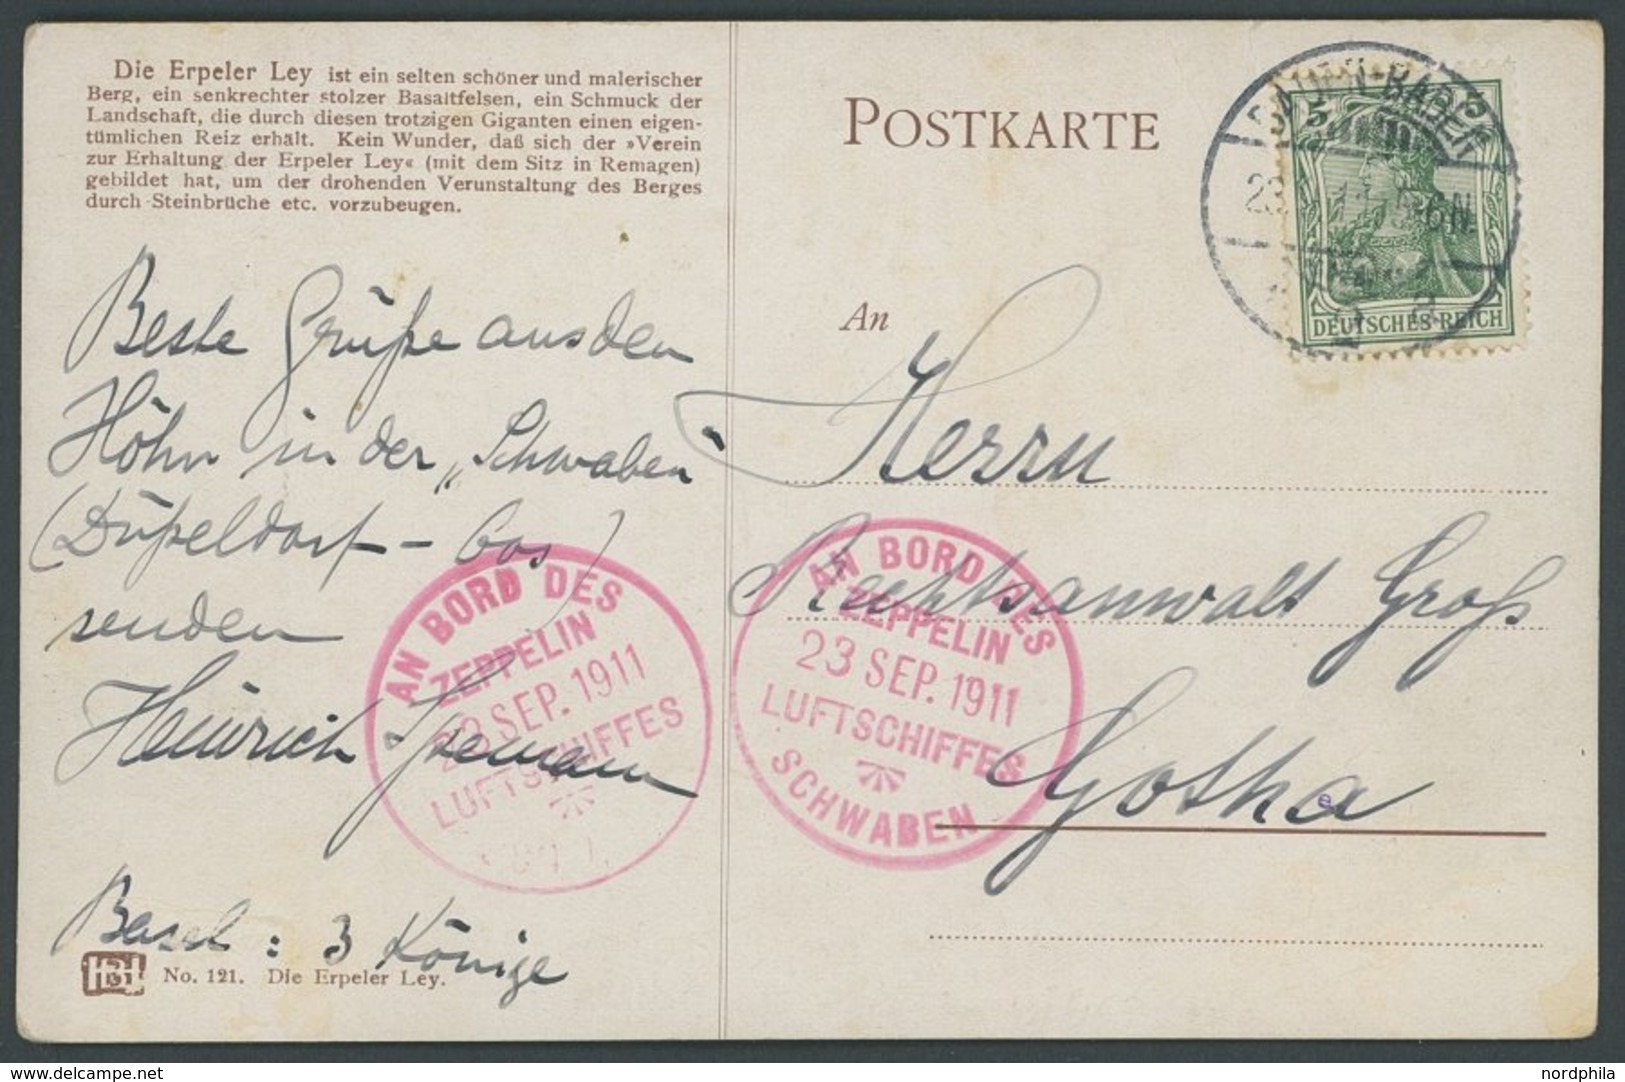 Die Erpeler Ley ist ein selten schöner und malerischer
Berg, ein senkrechter stolzer Basaltfelsen, ein Schmuck der
Landschaft, die durch diesen trotzigen Giganten einen eigen-
tümlichen Reiz erhält. Kein Wunder, daß sich der »Verein
zur Erhaltung der Erpeler Ley« (mit dem Sitz in Remagen)
gebildet hat, um der drohenden Verunstaltung des Berges
durch Steinbrüche etc. vorzubeugen.
Beste Grüße aus den
Höhn in der „Schwaben“
(Düßeldorf – Oos)
senden
Heinrich
Basel : 3 Könige
No. 121. Die Erpeler Ley.
AN BORD DES
ZEPPELIN
23 SEP. 1911
LUFTSCHIFFES
POSTKARTE
BADEN-BADEN
5 5
DEUTSCHES REICH
An
Herrn
Rechtsanwalt Groß
Gotha
AN BORD DES
ZEPPELIN
23 SEP. 1911
LUFTSCHIFFES
SCHWABEN
www.delcampe.net
nordphila